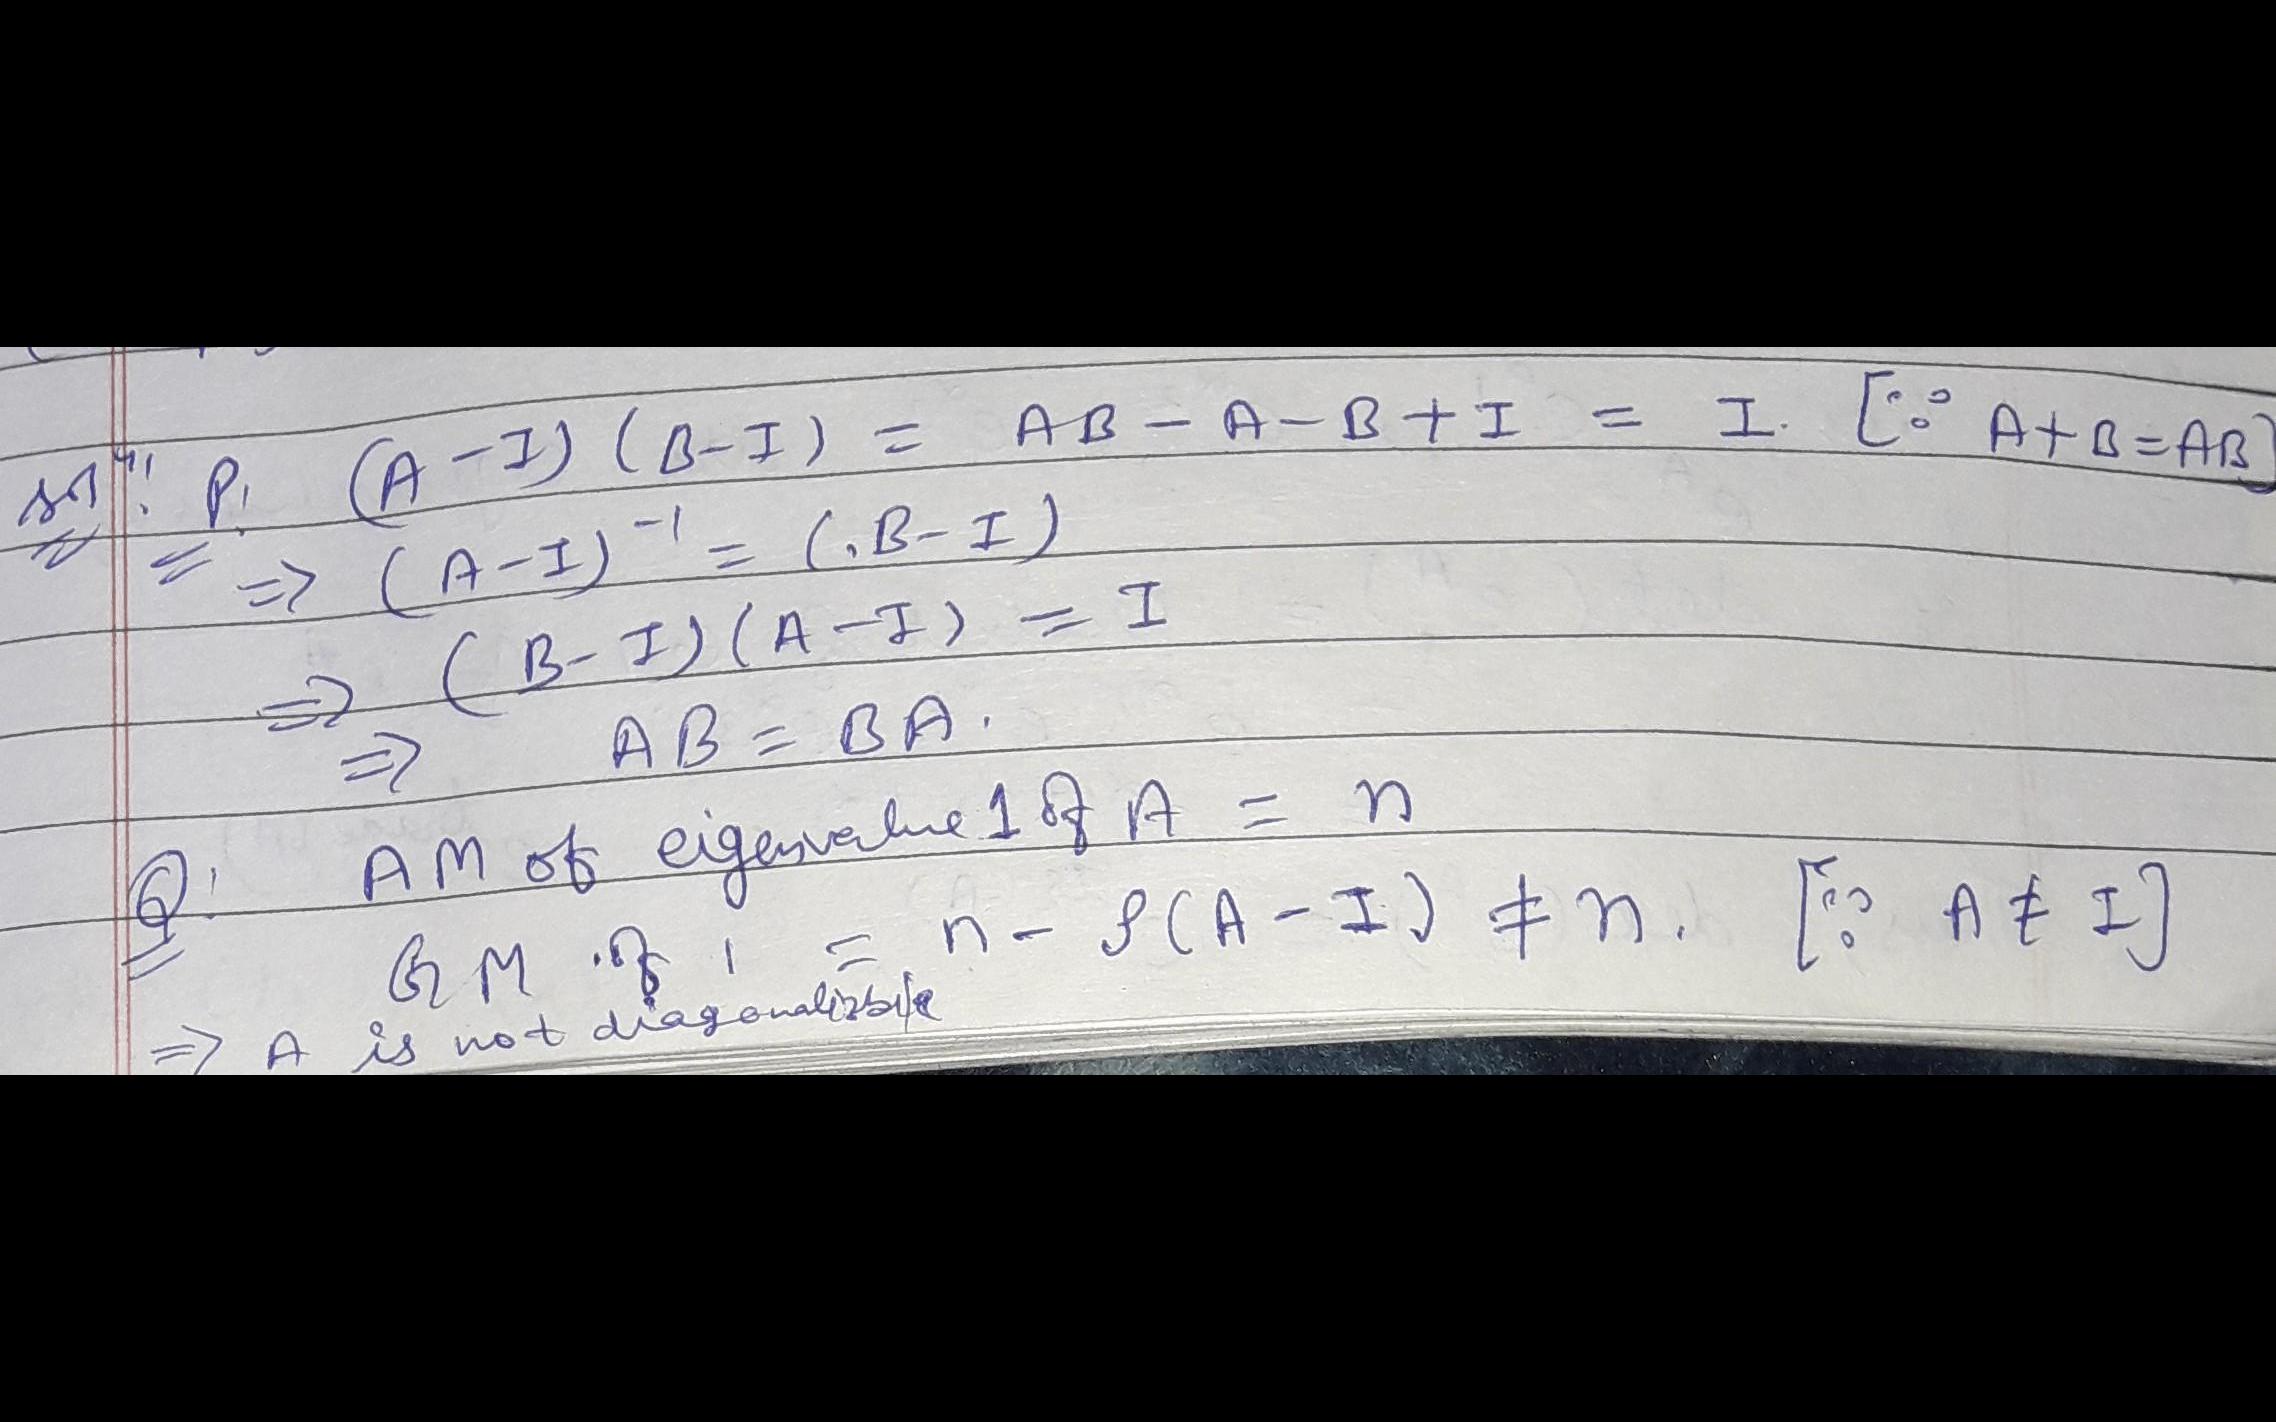 solⁿ: P: (A-I)(B-I) = AB-A-B+I = I. [∵ A+B=AB]
⇒ (A-I)⁻¹ = (B-I)
⇒ (B-I)(A-I) = I
⇒ AB = BA.
Q: AM of eigenvalue 1 of A = n
GM of 1 = n - ρ(A-I) ≠ n. [∵ A ≠ I]
⇒ A is not diagonalizble